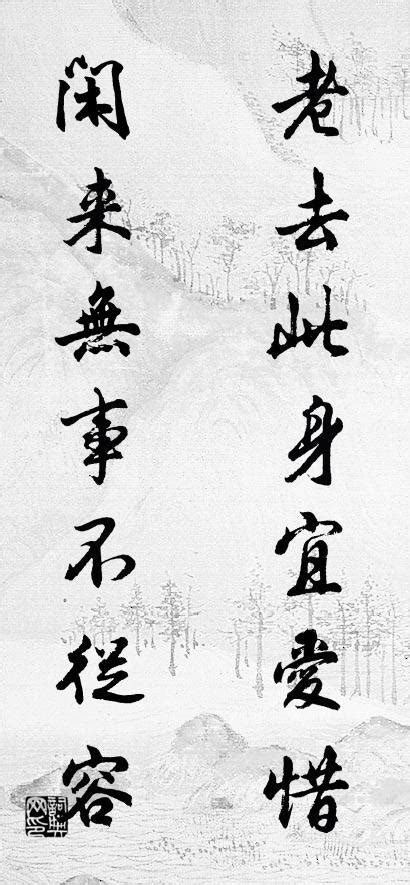 老去此身宜愛惜
閑来無事不從容